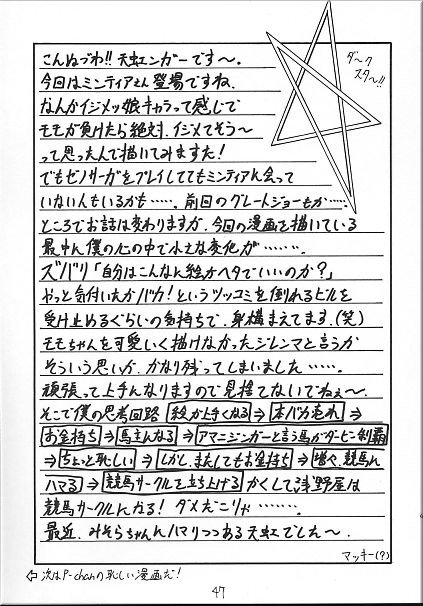 こんぬづわ!! 天虹ンガーです〜。
ダ〜ク
スタ〜!!
今回はミンティアさん登場ですね。
なんかイジメッ娘キャラって感じで
モモが負けたら絶対、イジメてそう〜
って思ったんで描いてみますた!
でもゼノサーガをプレイしててもミンティアに会って
いない人もいるかも……。前回のグレートジョーもか……
ところでお話は変わりますが、今回の漫画を描いている
最中に僕の心の中で小さな変化が………。
ズバリ「自分はこんなに絵がヘタでいいのか?」
やっと気付いたかバカ!というツッコミを倒れるビルを
受け止めるぐらいの気持ちで、身構えてます。(笑)
モモちゃんを可愛いく描けなかったジレンマと言うか
そういう思いが、かなり残ってしまいました……。
頑張って上手になりますので見捨てないでねぇ〜。
そこで僕の思考回路 絵が上手くなる⇒本バカ売れ⇒
お金持ち⇒馬主になる⇒アマニジンガーと言う馬がダービー制覇
⇒ちょっと恥しい⇒しかし、またしてもお金持ち⇒増々、競馬に
ハマる⇒競馬サークルを立ち上げる かくして浅野屋は
競馬サークルになる! ダメだこりゃ………。
最近、みそらちゃんにハマりつつある天虹でした〜。
マッキー(?)
⇦次はP-chanの恥しい漫画だ!
47